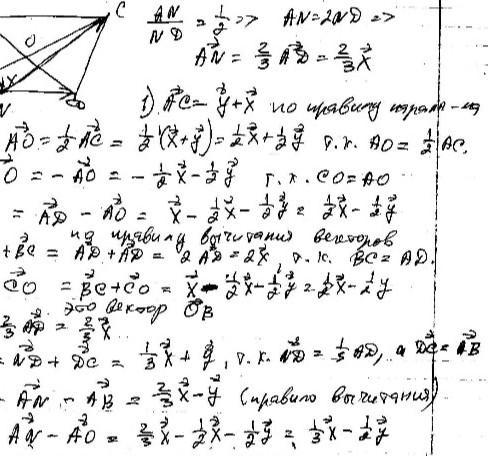 C
O
N
D
x
AN/ND = 1/2 => AN = 2ND =>
AN = 2/3 AD = 2/3 x
1) AC = y + x по правилу
AO = 1/2 AC = 1/2 (x + y) = 1/2 x + 1/2 y т.к. AO = 1/2 AC.
O = - AO = - 1/2 x - 1/2 y т.к. CO = AO
= AD - AO = x - 1/2 x - 1/2 y = 1/2 x - 1/2 y
по правилу вычитания векторов
+ BC = AD + AD = 2 AD = 2x, т.к. BC = AD.
CO = BC + CO = x - 1/2 x - 1/2 y = 1/2 x - 1/2 y
это вектор OB
2/3 AD = 2/3 x
= ND + DC = 1/3 x + y, т.к. ND = 1/3 AD, а DC = AB
- AN - AB = 2/3 x - y (правило вычитания)
AN - AO = 2/3 x - 1/2 x - 1/2 y =